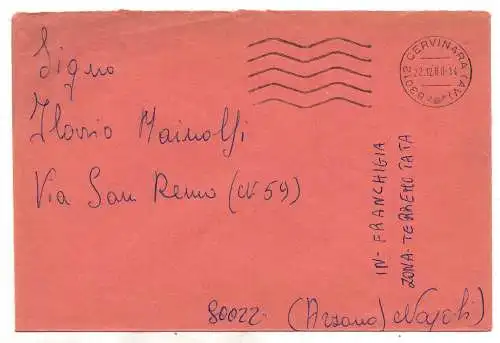 Signo
Ilario Mainolfi
Via San Remo (N 59)
80022 (Arzano) Napoli
IN FRANCHIGIA
ZONA TERREMOTATA
83012 CERVINARA (AV)
22.12.80-14